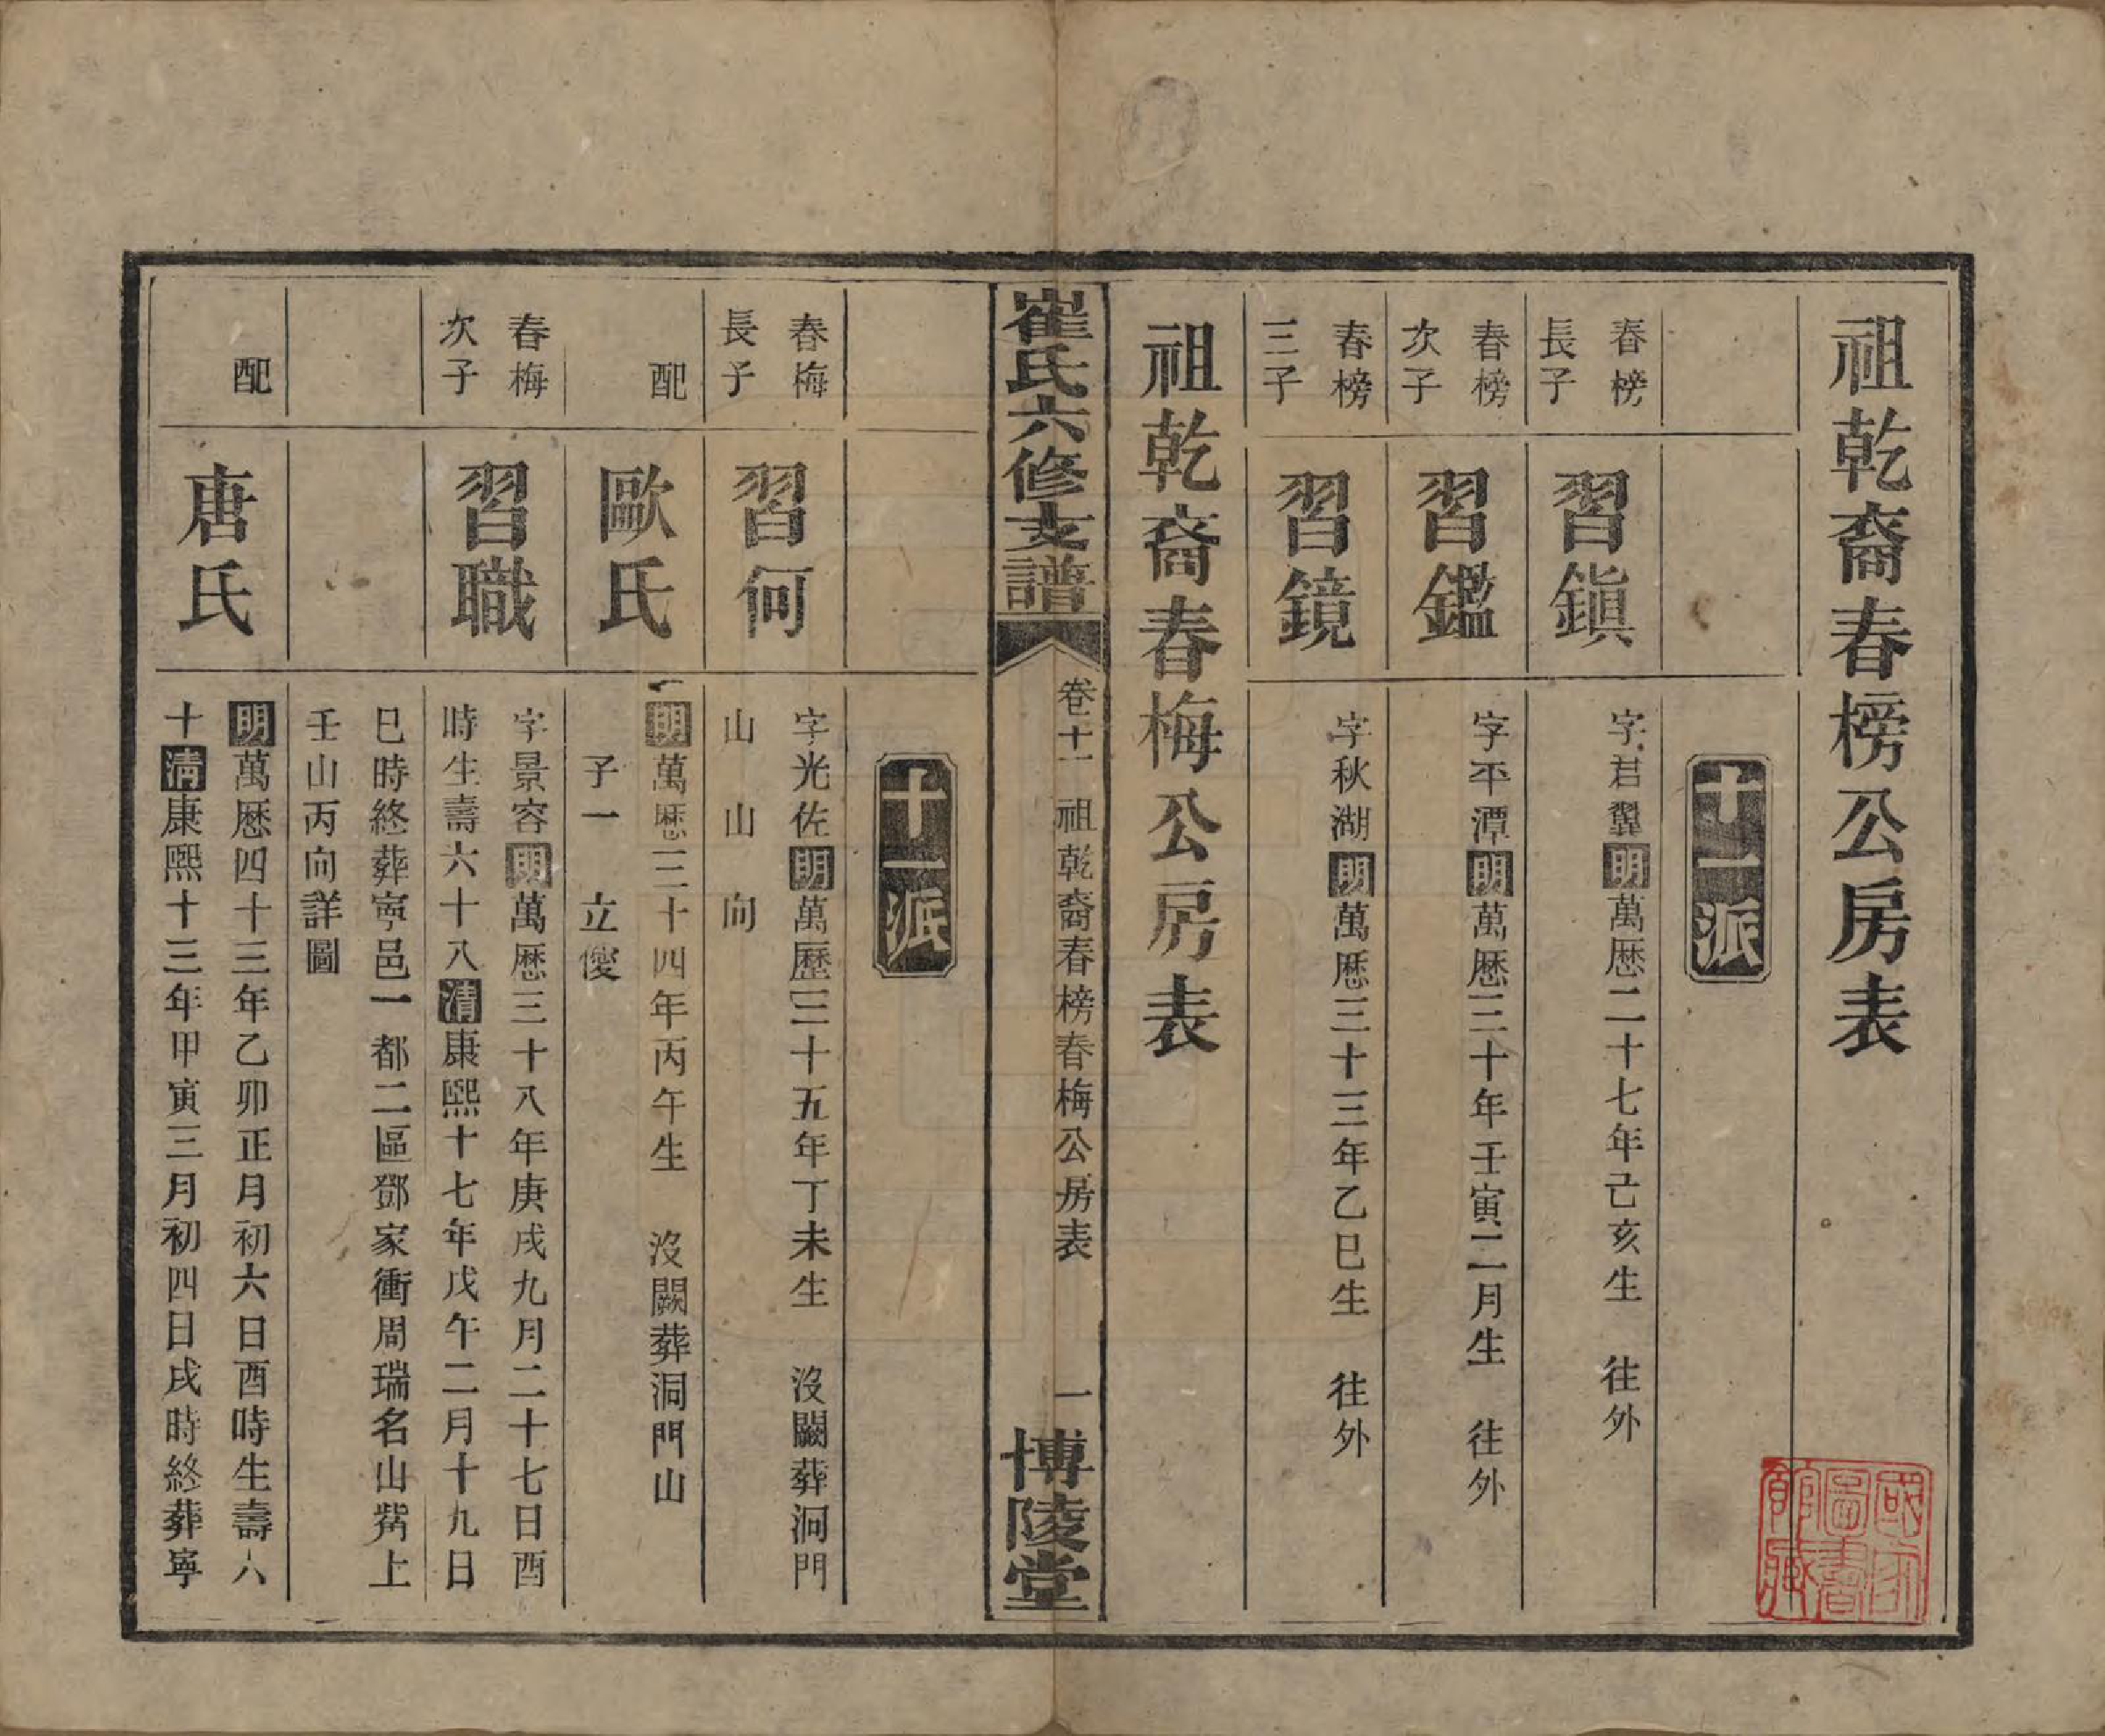 祖乾裔春榜公房表
十一派
春榜
長子
習鎭
字君翼明萬厯二十七年己亥生　往外
春榜
次子
習鑑
字平潭明萬厯三十年壬寅二月生　往外
春榜
三子
習鏡
字秋湖明萬厯三十三年乙巳生　往外
祖乾裔春梅公房表
崔氏六修支譜
卷十一　祖乾裔春榜春梅公房表
一
博陵堂
十一派
春梅
長子
習何
字光佐明萬歷三十五年丁未生　沒闕葬洞門
山　山　向
配
歐氏
明萬厯三十四年丙午生　沒闕葬洞門山
子一　立
春梅
次子
習職
字景容明萬厯三十八年庚戌九月二十七日酉
時生壽六十八清康熙十七年戊午二月十九日
巳時終葬寧邑一都二區鄧家衝周瑞名山觜上
壬山丙向詳圖
配
唐氏
明萬厯四十三年乙卯正月初六日酉時生壽六
十清康熙十三年甲寅三月初四日戌時終葬寧
國家
圖書
館藏